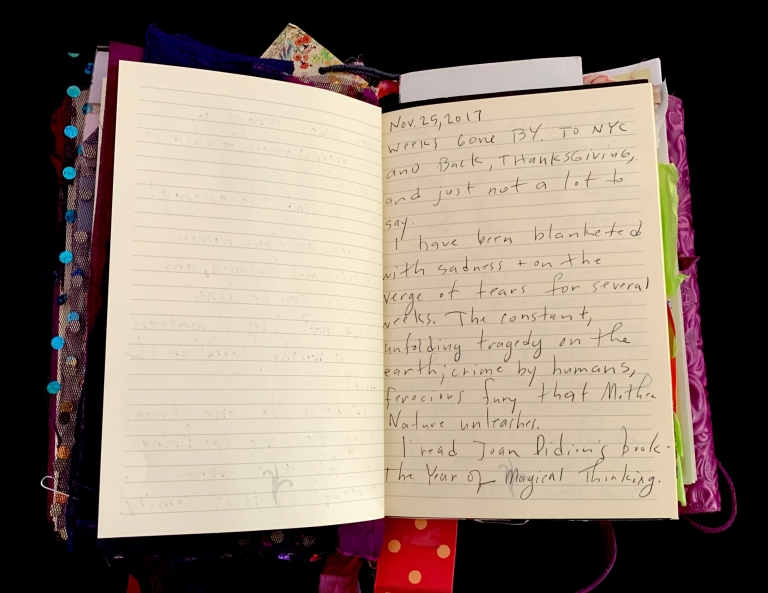 Nov. 25, 2017
weeks Gone BY. TO NYC
and Back, THANKSGIVING,
and just not a lot to
say.
I have been blanketed
with sadness + on the
verge of tears for several
weeks. The constant,
unfolding tragedy on the
earth; crime by humans,
ferocious fury that Mother
Nature unleashes.
I read Joan Didion's book -
The Year of Magical Thinking.